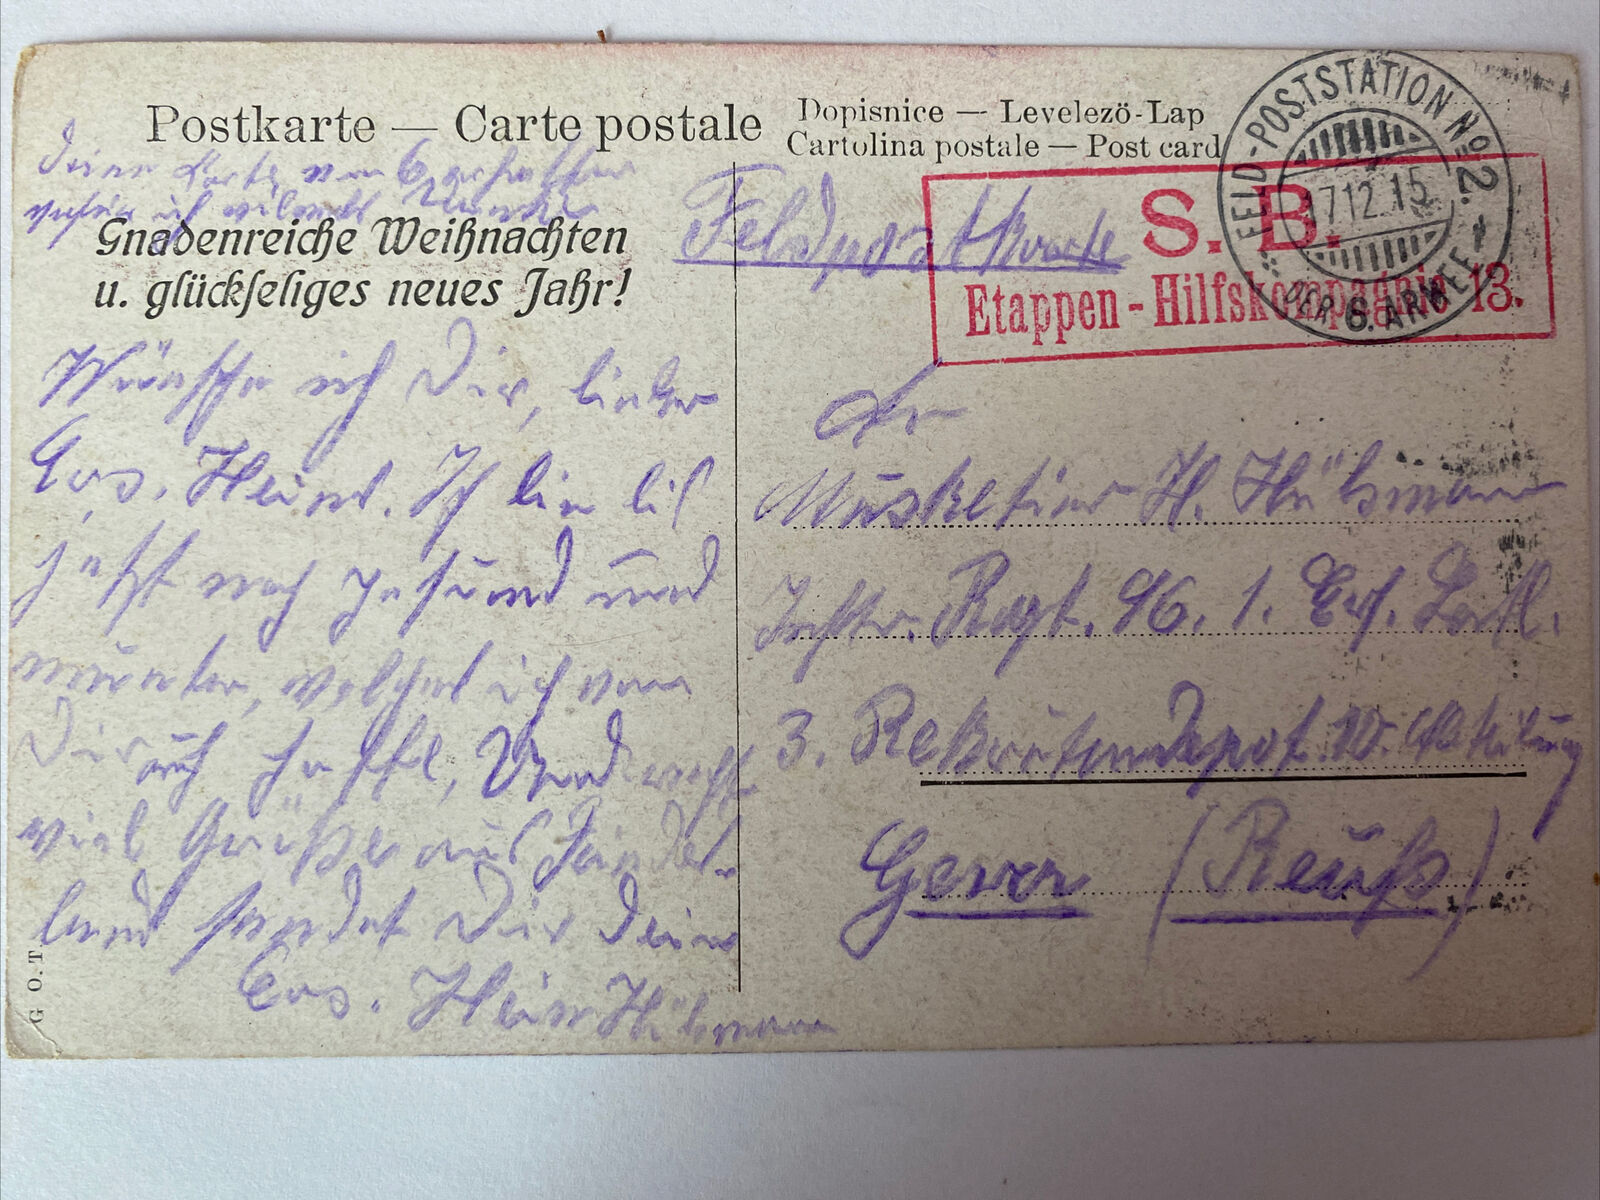 Postkarte — Carte postale
Dopisnice — Levelezö-Lap
Cartolina postale — Post card
Deine Karte vom
ich
Gnadenreiche Weihnachten
u. glückseliges neues Jahr!
Feldpostkarte
S. B.
Etappen-Hilfskompagnie 13.
FELD-POSTSTATION No. 2.
17.12.15
DER 6. ARMEE
Wünsche ich Dir, lieber
Heinr. Ich bin bis
jetzt noch gesund und
munter, welches ich von
Dir auch hoffe, Und recht
viel Grüße aus Feindes-
land sendet Dir Dein
Hülsmann
An
Musketier H. Hülsmann
Inftr. Regt. 96. 1. Ers. Batl.
3. Rekrutendepot. 10. Abteilung
Gera (Reuß)
G. O. T.